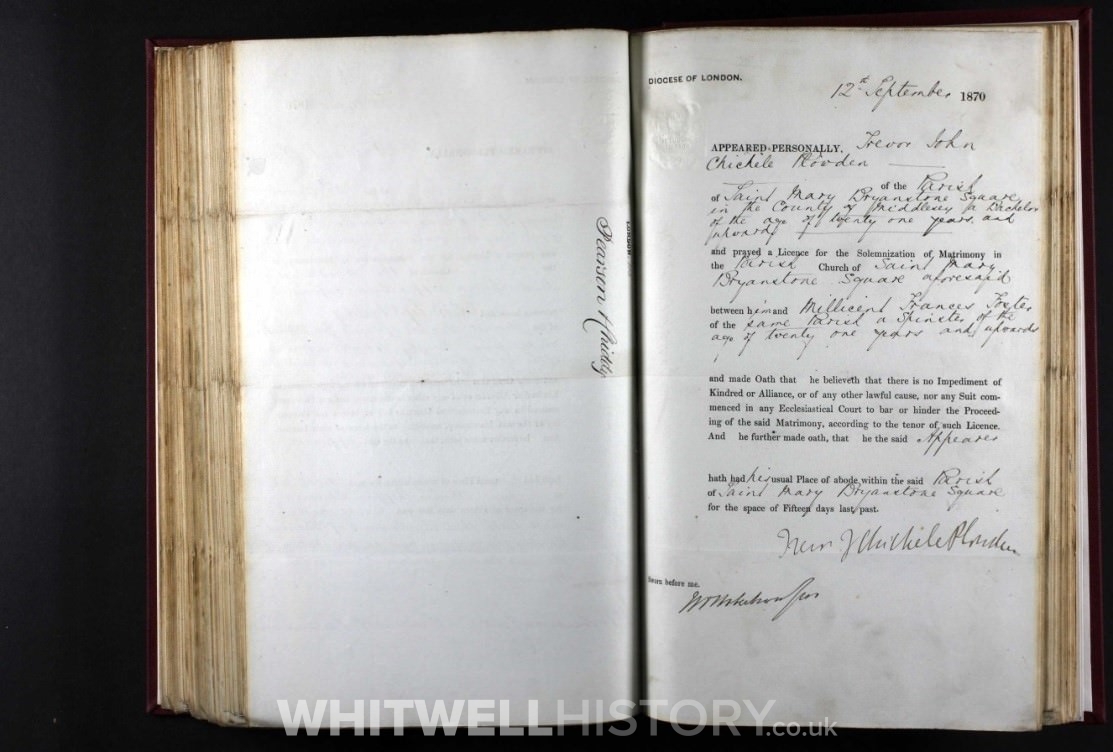 Pearson & Chiddy
DIOCESE OF LONDON.
12th September 1870
APPEARED PERSONALLY, Trevor John
Chichele Plowden
of the Parish
of Saint Mary Bryanstone Square
in the County of Middlesex a Bachelor
of the age of twenty one years and
upwards
and prayed a Licence for the Solemnization of Matrimony in
the Parish Church of Saint Mary
Bryanstone Square aforesaid
between him and Millicent Frances Foster
of the same Parish a Spinster of the
age of twenty one years and upwards
and made Oath that he believeth that there is no Impediment of
Kindred or Alliance, or of any other lawful cause, nor any Suit com-
menced in any Ecclesiastical Court to bar or hinder the Proceed-
ing of the said Matrimony, according to the tenor of such Licence.
And he further made oath, that he the said Appearer
hath had his usual Place of abode within the said Parish
of Saint Mary Bryanstone Square
for the space of Fifteen days last past.
Trevor J Chichele Plowden
Sworn before me.
WHITWELLHISTORY.co.uk